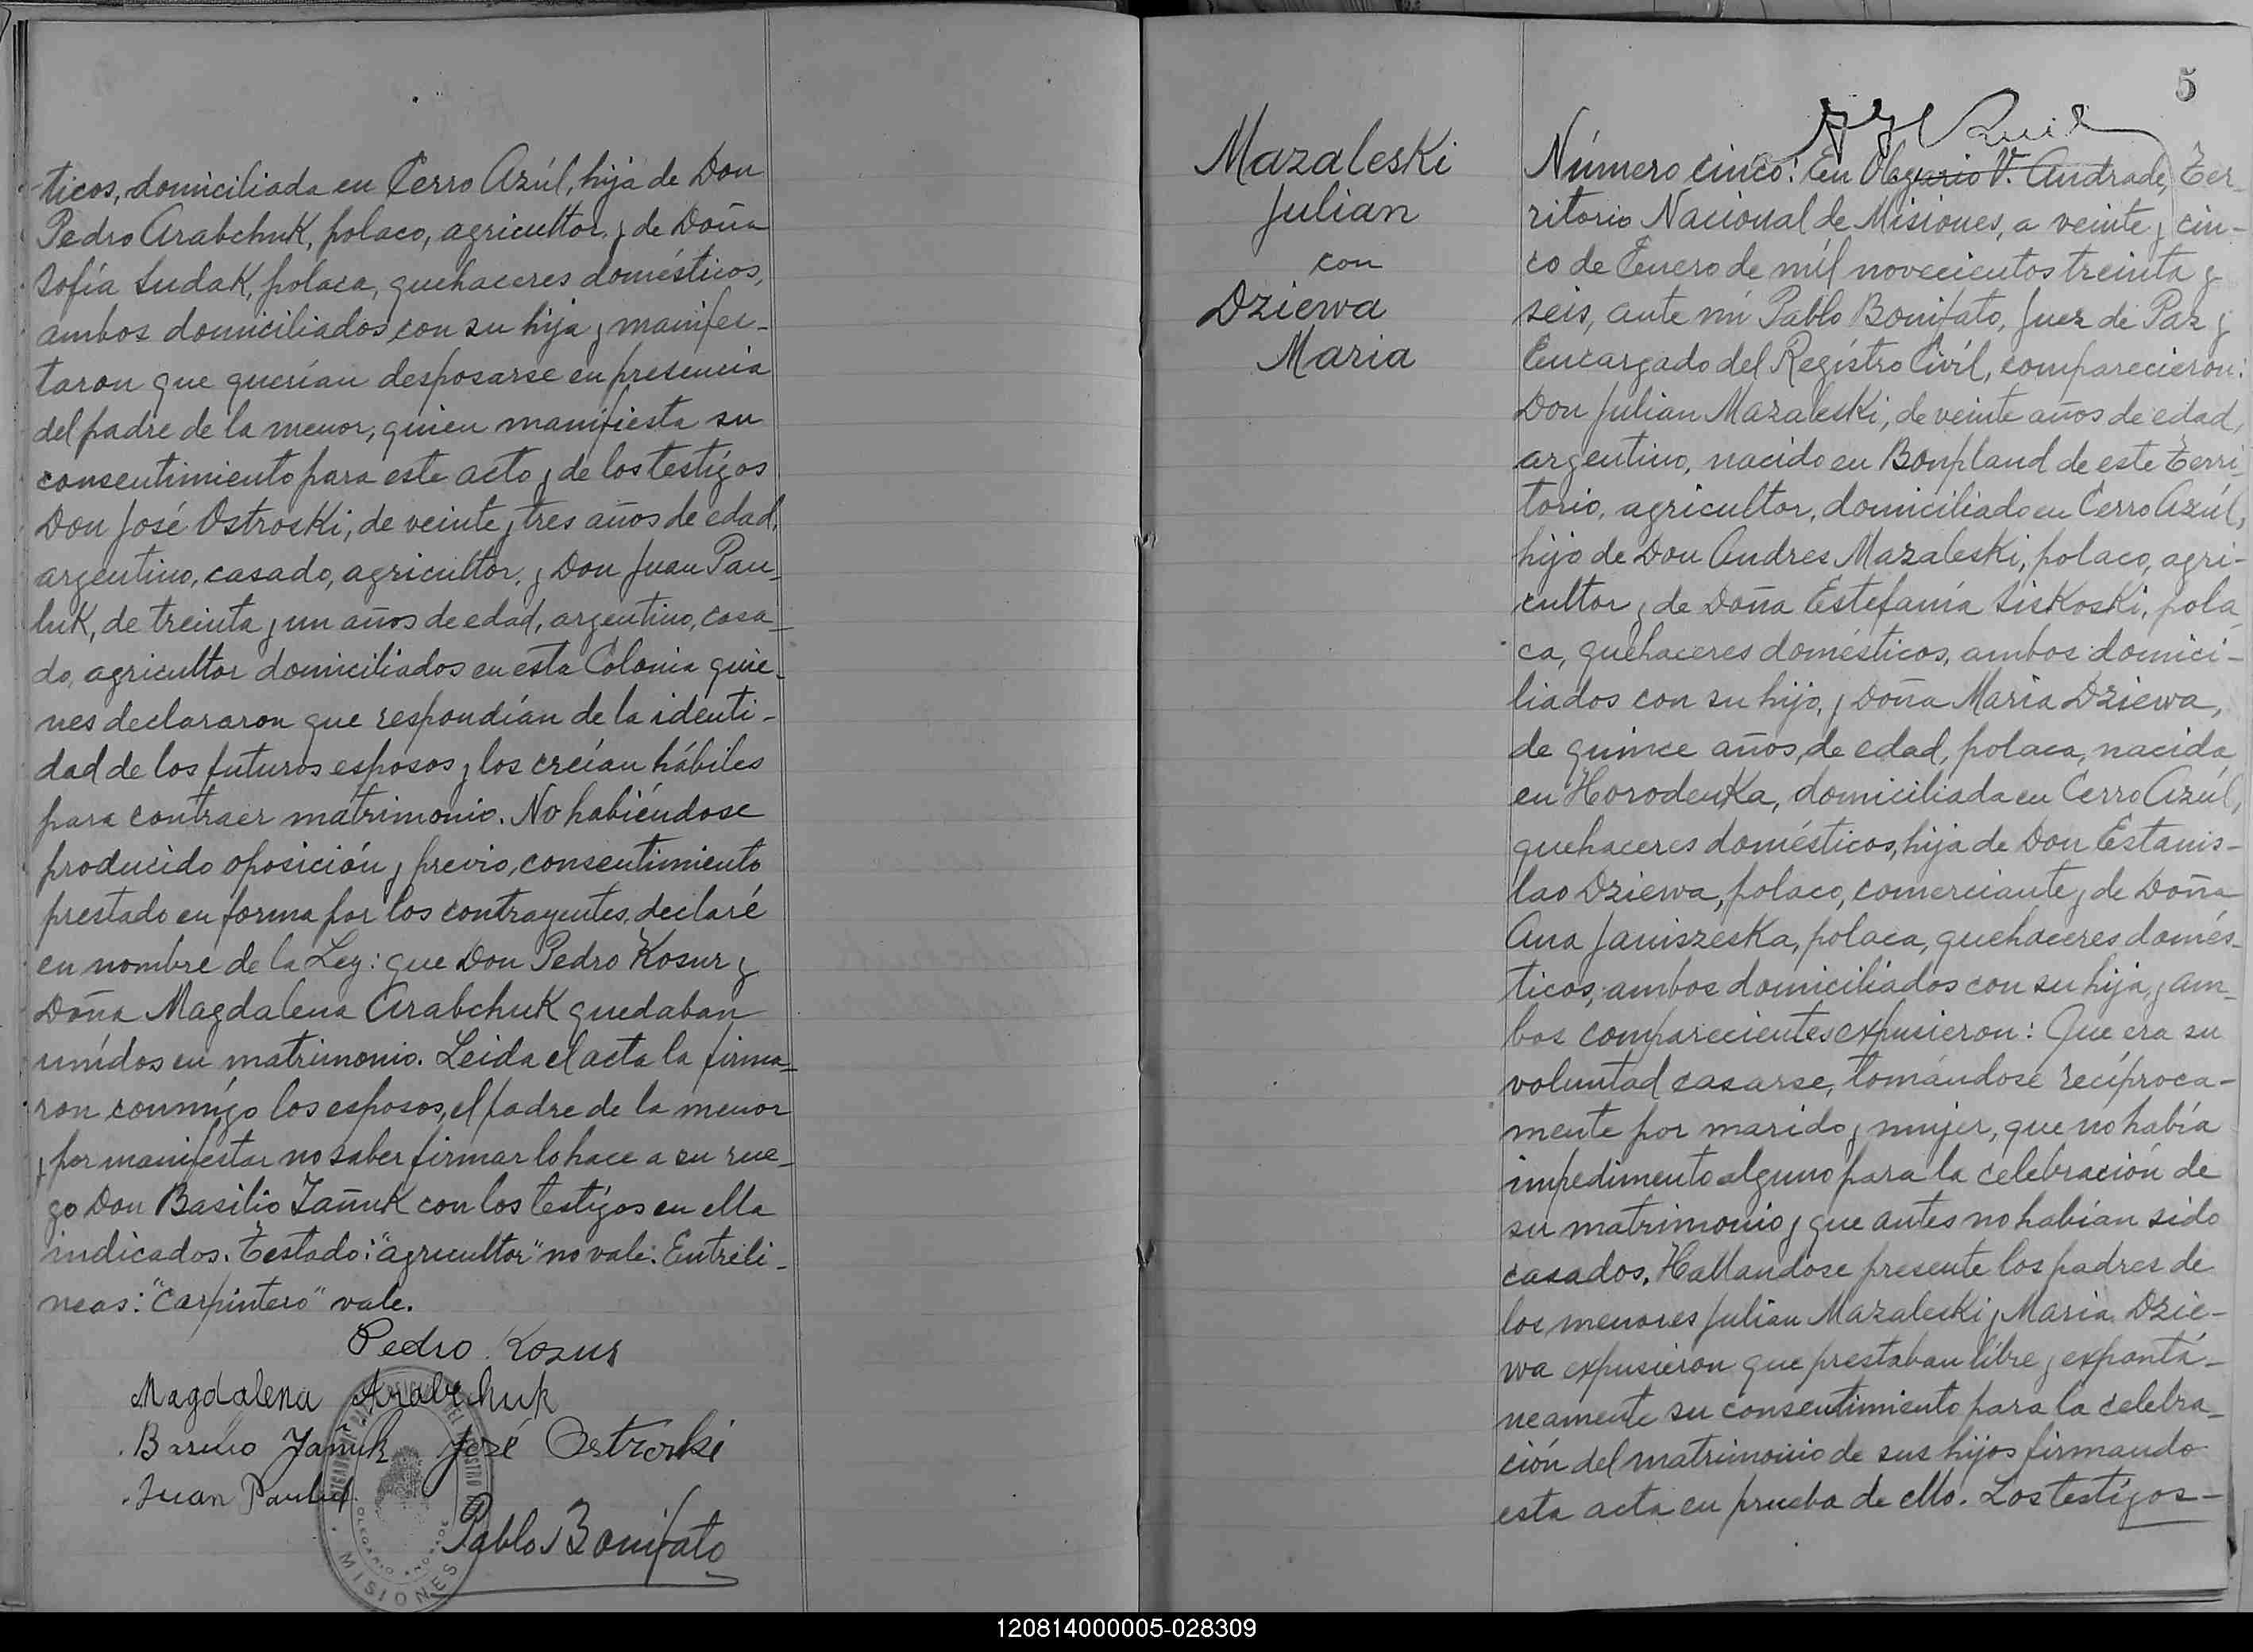 ticos, domiciliada en Cerro Azúl, hija de Don
Pedro Arabchuk, polaco, agricultor y de Doña
Sofía Sudak, polaca, quehaceres domésticos,
ambos domiciliados con su hija y manifes-
taron que querían desposarse en presencia
del padre de la menor, quien manifiesta su
consentimiento para este acto y de los testigos
Don José Ostroski, de veinte y tres años de edad,
argentino, casado, agricultor y Don Juan Pau-
luk, de treinta y un años de edad, argentino, casa-
do, agricultor domiciliados en esta Colonia quie-
nes declararon que respondían de la identi-
dad de los futuros esposos y los creían hábiles
para contraer matrimonio. No habiéndose
producido oposición y previo, consentimiento
prestado en forma por los contrayentes, declaré
en nombre de la Ley: que Don Pedro Kosur y
Doña Magdalena Arabchuk quedaban
unídos en matrimonio. Leida el acta la firma-
ron conmigo los esposos, el padre de la menor
y por manifestar no saber firmar lo hace a su rue-
go Don Basilio Yañuk con los testigos en ella
indicados. Testado: "agricultor" no vale. Entreli-
neas: "Carpintero" vale.
Pedro Kosur
Magdalena Arabchuk
Basilio Yañuk José Ostroski
Juan Pauluk
Pablo Bonifato
MISIONES
5
Mazaleski
Julian
con
Dziewa
Maria
Número cinco: En Olegario V. Andrade, Ter-
ritorio Nacional de Misiones, a veinte y cin-
co de Enero de mil novecientos treinta y
seis, ante mí Pablo Bonifato, Juez de Paz y
Encargado del Regístro Civíl, comparecieron:
Don Julian Mazaleski, de veinte años de edad,
argentino, nacido en Bonpland de este Terri-
torio, agricultor, domiciliado en Cerro Azúl,
hijo de Don Andres Mazaleski, polaco, agri-
cultor y de Doña Estefanía Siskoski, pola-
ca, quehaceres domésticos, ambos domici-
liados con su hijo, y Doña Maria Dziewa,
de quince años de edad, polaca, nacida
en Horodenka, domiciliada en Cerro Azúl,
quehaceres domésticos, hija de Don Estanis-
lao Dziewa, polaco, comerciante y de Doña
Ana Janiszeska, polaca, quehaceres domés-
ticos, ambos domiciliados con su hija, y am-
bos comparecientes expusieron: Que era su
voluntad casarse, tomándose recíproca-
mente por marido y mujer, que no había
impedimento alguno para la celebración de
su matrimonio y que antes no habían sido
casados. Hallandose presente los padres de
los menores Julian Mazaleski y Maria Dzie-
wa expusieron que prestaban libre y expontá-
neamente su consentimiento para la celebra-
ción del matrimonio de sus hijos firmando
esta acta en prueba de ello. Los testigos-
120814000005-028309